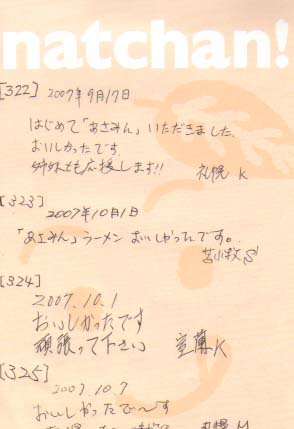 natchan!
[322] 2007年9月17日
はじめて「あさみん」いただきました。
おいしかったです。
姉妹とも応援します!! 札幌 K
[323]
2007年10月1日
「あさみん」ラーメン おいしかったです。
苫小牧 S
[324]
2007.10.1
おいしかったです
頑張って下さい 室蘭K
[325]
2007.10.7
おいしかったで〜す
札幌 M